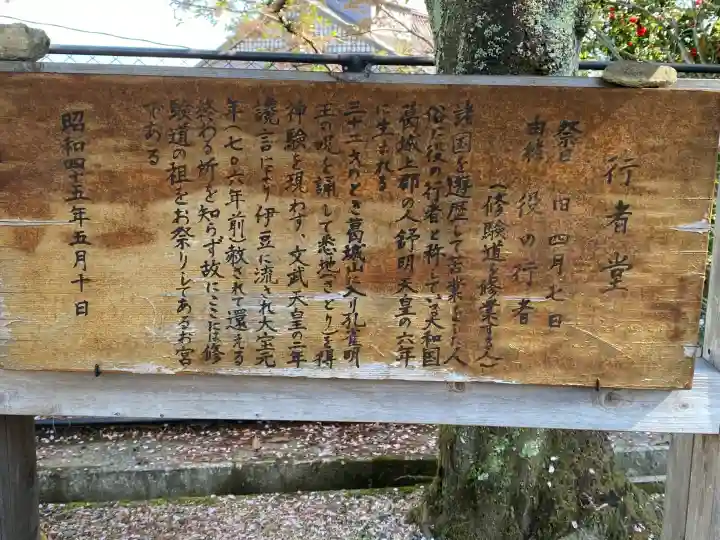 行者堂
祭日 旧四月七日
由緒 役の行者
(修験道を修業する人)
諸国を遊歴して苦業をした人
俗に役の行者と称している大和国
葛城上郡の人舒明天皇の六年
に生まれる
三十二才のとき葛城山へ入り孔雀明
王の呪を誦して悉地(さとり)を得
神験を現わす、文武天皇の二年
讒言により伊豆に流され大宝元
年(七〇六年前)赦されて還える
終わる所を知らず故にここには修
験道の祖をお祭りしてあるお宮
である
昭和四十五年五月十日